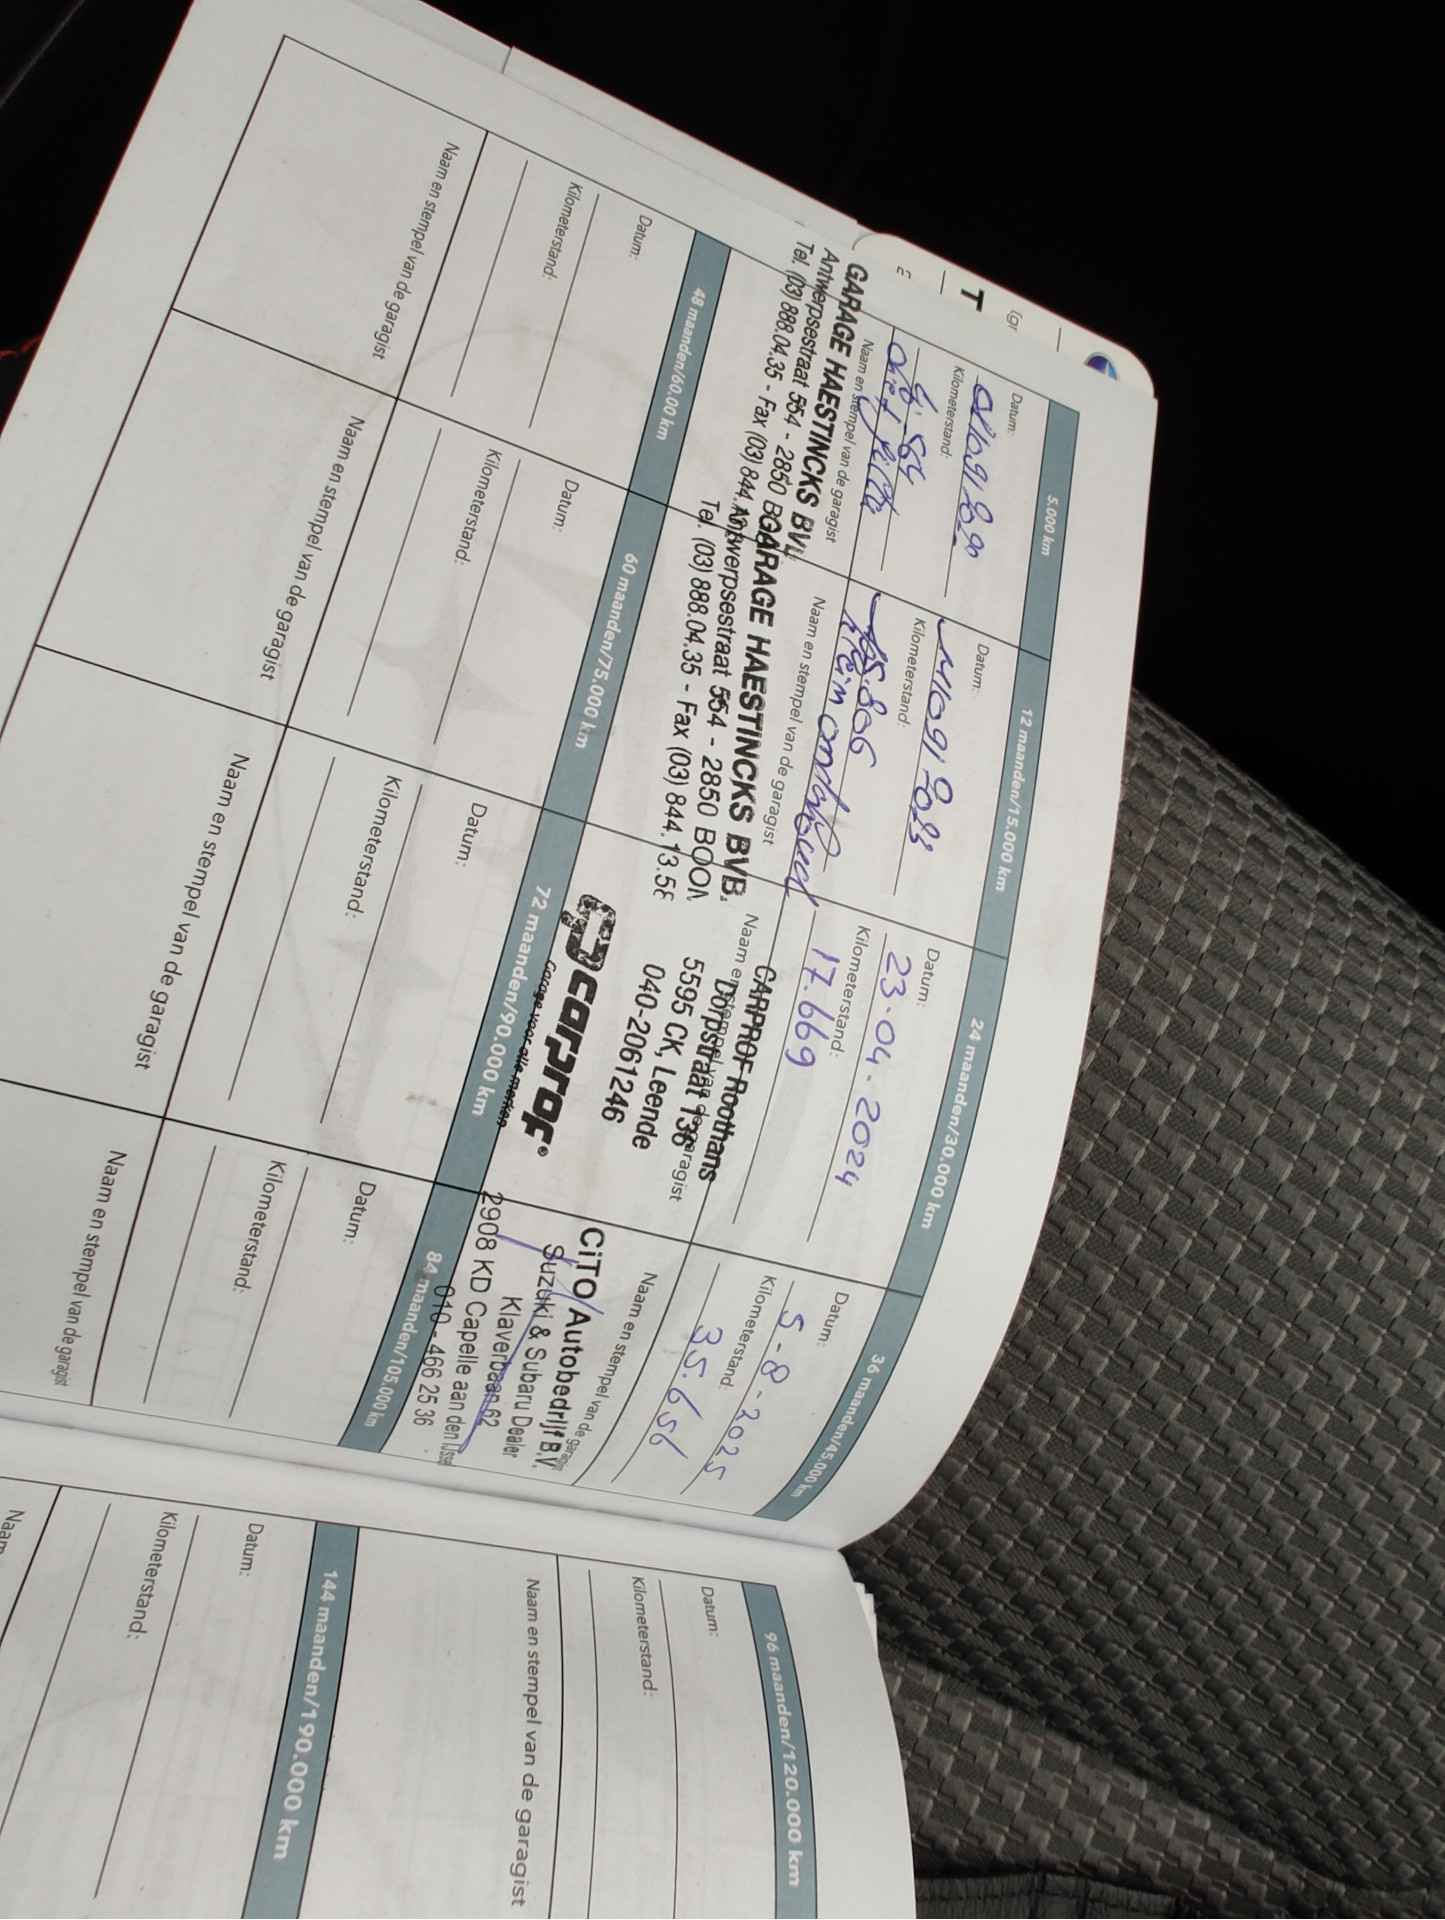 T
5.000 km
Datum:
Kilometerstand:
Naam en stempel van de garagist
GARAGE HAESTINCKS BV
Antwerpsestraat 554 - 2850 BO
Tel. (03) 888.04.35 - Fax (03) 844.
12 maanden/15.000 km
Datum:
Kilometerstand:
15.806
Naam en stempel van de garagist
GARAGE HAESTINCKS BVB
Antwerpsestraat 554 - 2850 BOOM
Tel. (03) 888.04.35 - Fax (03) 844.13.5
24 maanden/30.000 km
Datum:
23-04-2024
Kilometerstand:
17.669
Naam en stempel van de garagist
CARPROF Roothans
Dorpstraat 136
5595 CK, Leende
040-2061246
carprof
Garage voor alle merken
36 maanden/45.000 km
Datum:
5-8-2025
Kilometerstand:
35.656
Naam en stempel van de garagist
CiTO Autobedrijf B.V.
Suzuki & Subaru Dealer
Klaverbaan 62
2908 KD Capelle aan den IJssel
010 - 466 25 36
48 maanden/60.00 km
Datum:
Kilometerstand:
Naam en stempel van de garagist
60 maanden/75.000 km
Datum:
Kilometerstand:
Naam en stempel van de garagist
72 maanden/90.000 km
Datum:
Kilometerstand:
Naam en stempel van de garagist
84 maanden/105.000 km
Datum:
Kilometerstand:
Naam en stempel van de garagist
96 maanden/120.000 km
Datum:
Kilometerstand:
Naam en stempel van de garagist
144 maanden/190.000 km
Datum:
Kilometerstand:
Naam